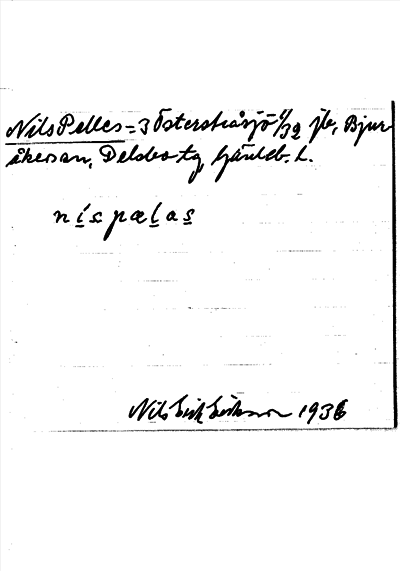 Nils Pelles = 3 Österstråsjö 6/32 jb, Bjur-
åkers sn, Delsbo tg Gävleb. L.
níspælas
Nils Erik Eriksson 1936